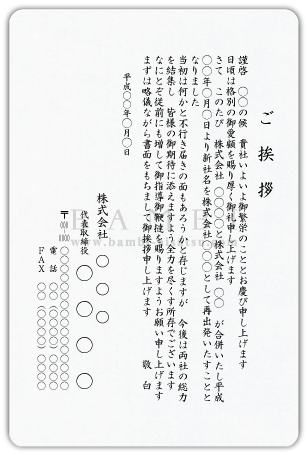 ご挨拶
謹啓 〇〇の候 貴社いよいよ御繁栄のこととお慶び申し上げます
日頃は格別の御愛顧を賜り厚く御礼申し上げます
さて このたび 株式会社 〇〇〇〇と株式会社 〇〇 が合併いたし平成
〇〇年〇月〇日より新社名を株式会社〇〇〇〇として再出発いたすことと
なりました
当初は何かと不行き届きの面もあろうかと存じますが 今後は両社の総力
を結集し 皆様の御期待に添えますよう全力を尽くす所存でございます
なにとぞ従前にも増して御指導御鞭撻を賜りますようお願い申し上げます
まずは略儀ながら書面をもちまして御挨拶申し上げます 敬白
平成〇〇年〇月〇日
株式会社 〇〇〇
代表取締役 〇〇〇〇
〒000-0000
電話 〇〇〇〇〇〇〇〇〇〇
FAX 〇〇〇〇〇〇〇〇〇〇